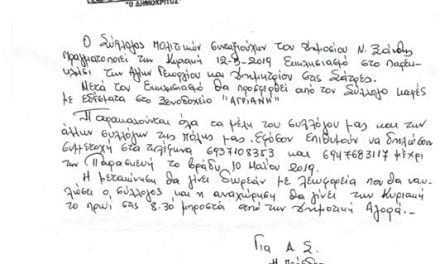 "Ο ΔΗΜΟΚΡΙΤΟΣ"
Ο Σύλλογος Πολιτικών συνταξιούχων του Δημοσίου Ν. Ξάνθης
πραγματοποιεί την Κυριακή 12-5-2019 Εκκλησιασμό στο Παρεκ-
κλήσι των Αγίων Γεωργίου και Δημητρίου στις Σάτρες.
Μετά τον Εκκλησιασμό θα προσφερθεί από τον Σύλλογο καφές
με εδέσματα στο Ξενοδοχείο "ΑΓΡΙΑΝΗ"
Παρακαλούνται όλα τα μέλη του συλλόγου μας και των
άλλων συλλόγων της πόλης μας. Εφόσον επιθυμούν να δηλώσουν
συμμετοχή στα τηλέφωνα 6937108353 και 6947683117 μέχρι
την Παρασκευή το βράδυ 10 Μαΐου 2019.
Η μετακίνηση θα γίνει δωρεάν με λεωφορεία που θα ναυ-
λώσει ο σύλλογος και η αναχώρηση θα γίνει την Κυριακή
το πρωί στις 8.30 μπροστά από την Δημοτική Αγορά.
Για Δ.Σ.
Η